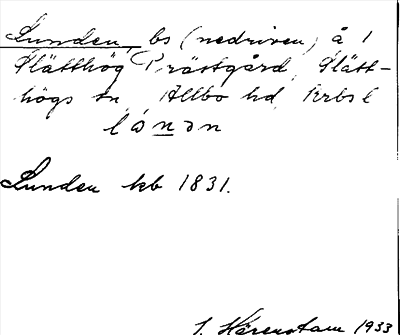 Lunden, bs (nedriven) å 1
Slätthög Prästgård, Slätt-
högs sn, Allbo hd, Krbs l
lánən
Lunden kb 1831.
S. Härenstam 1933